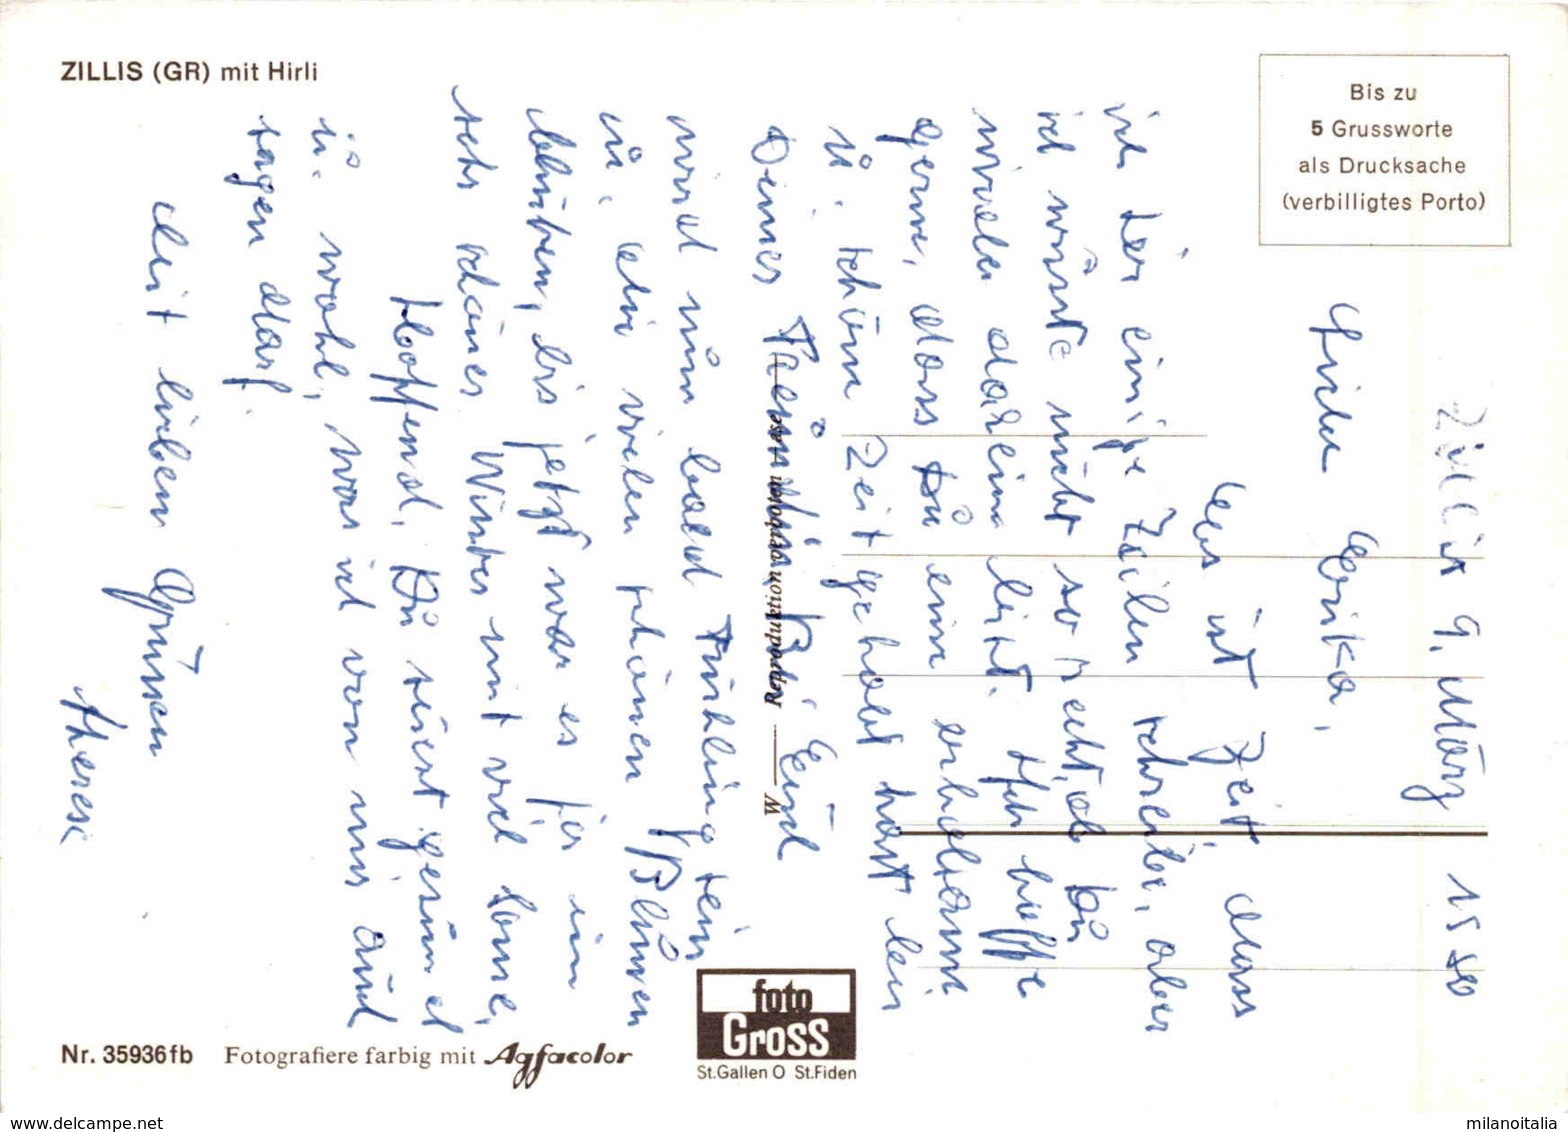 ZILLIS (GR) mit Hirli
Bis zu
5 Grussworte
als Drucksache
(verbilligtes Porto)
Zillis 9. März 1980
Liebe Erika,
Es ist Zeit, dass
ich Dir einige Zeilen schreibe, aber
ich wüsste nicht so recht, ob Du
wieder daheim bist. Ich hoffe
gerne, dass Du eine erholsame
u. schöne Zeit gehabt hast bei
Deiner Freundin. Bei Euch
wird nun bald Frühling sein
u. die vielen schönen Blumen
blühen, bis jetzt war es hier ein
sehr schöner Winter mit viel Sonne.
Hoffend, Du seiest gesund
u. wohl, was ich von uns auch
sagen darf.
Mit lieben Grüssen
Therese
Reproduktion verboten
W
Nr. 35936fb
Fotografiere farbig mit Agfacolor
foto
Gross
St.Gallen O St.Fiden
www.delcampe.net
milanoitalia